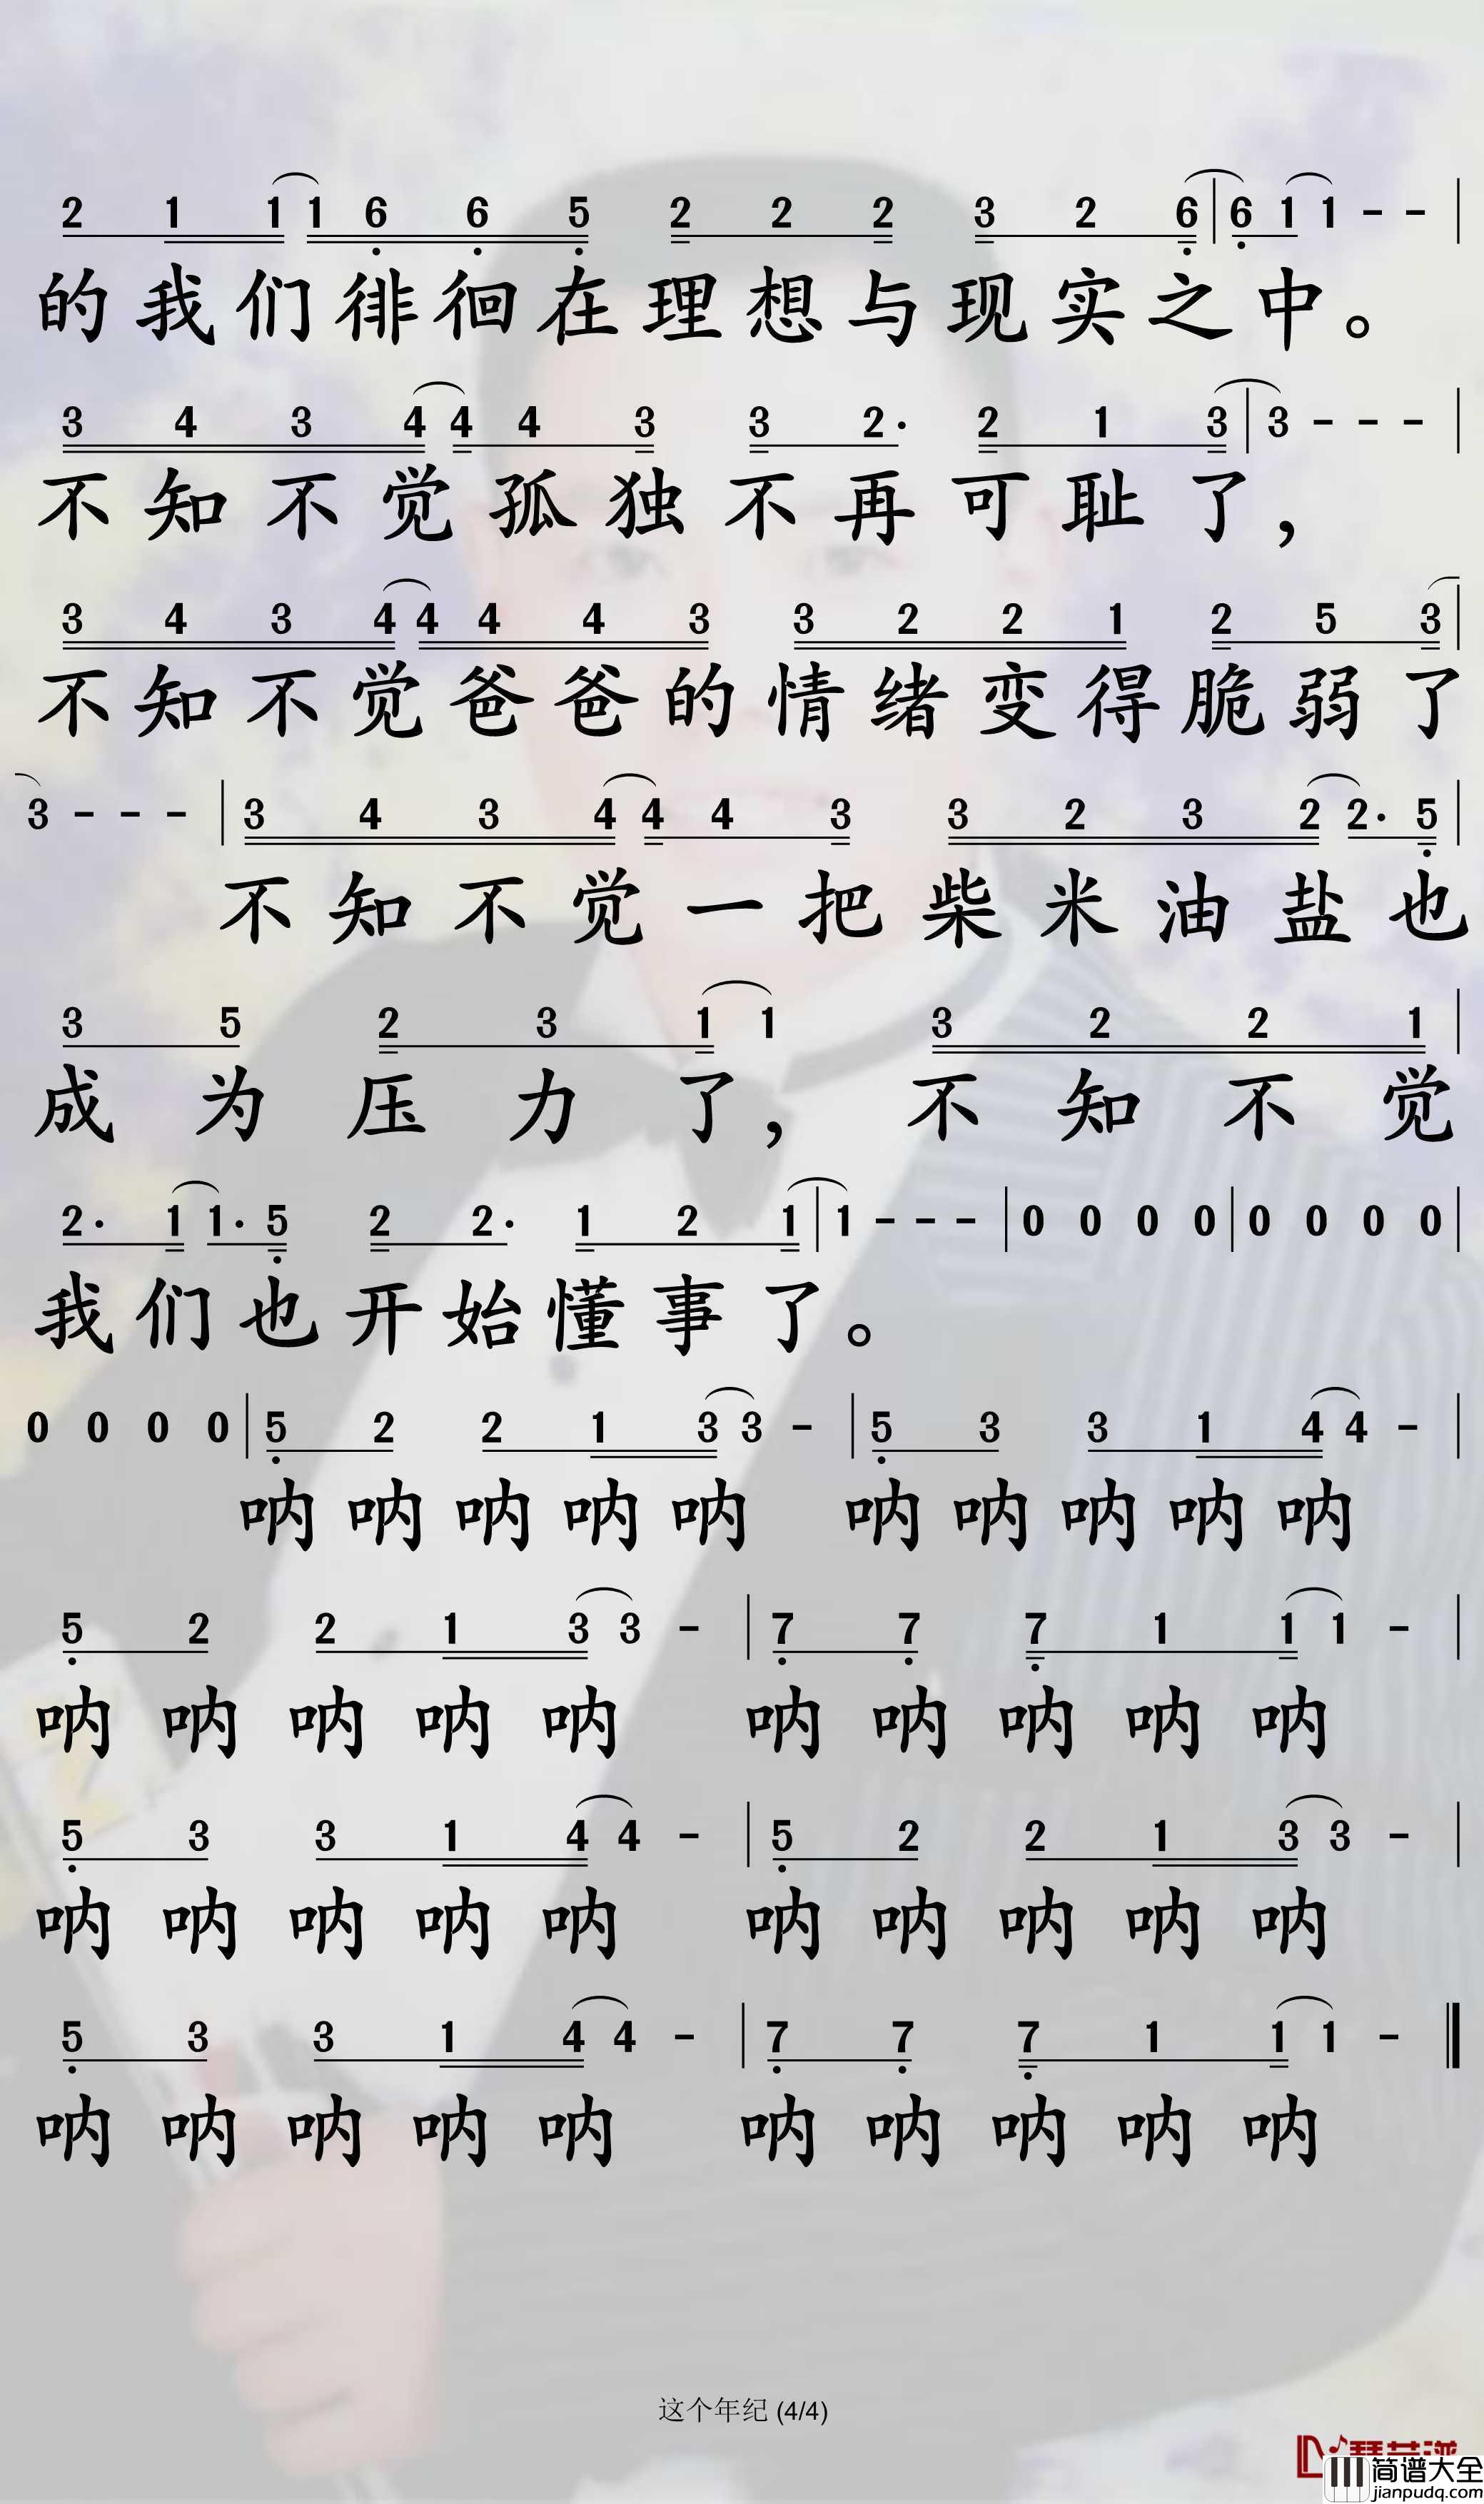 2 1 1 1 6 6 5 2 2 2 3 2 6 | 6 1 1 - - |
的我们徘徊在理想与现实之中。
3 4 3 4 4 4 3 3 2. 2 1 3 | 3 - - - |
不知不觉孤独不再可耻了，
3 4 3 4 4 4 4 3 3 2 2 1 2 5 3 |
不知不觉爸爸的情绪变得脆弱了
3 - - - | 3 4 3 4 4 4 3 3 2 3 2 2. 5 |
不知不觉一把柴米油盐也
3 5 2 3 1 1 3 2 2 1 |
成为压力了，不知不觉
2. 1 1. 5 2 2. 1 2 1 | 1 - - - | 0 0 0 0 | 0 0 0 0 |
我们也开始懂事了。
0 0 0 0 | 5 2 2 1 3 3 - | 5 3 3 1 4 4 - |
呐呐呐呐呐 呐呐呐呐呐
5 2 2 1 3 3 - | 7 7 7 1 1 1 - |
呐呐呐呐呐 呐呐呐呐呐
5 3 3 1 4 4 - | 5 2 2 1 3 3 - |
呐呐呐呐呐 呐呐呐呐呐
5 3 3 1 4 4 - | 7 7 7 1 1 1 - ‖
呐呐呐呐呐 呐呐呐呐呐
这个年纪 (4/4)
简谱大全
jianpudq.com